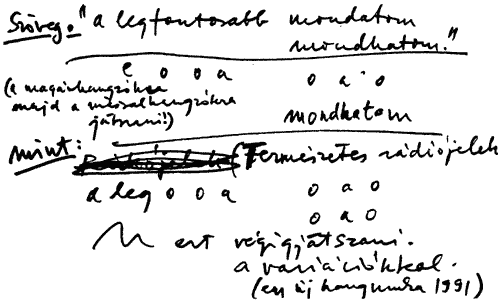 Szöveg: "a legfontosabb mondatom
mondhatom."
e o o a o a o
(a magánhangzókra
majd a mássalhangzókra
játszani!)
mondhatom
mint:
(Természetes rádiójelek
a leg o o a o a o
o a o
ezt végigjátszani.
a variációkkal.
(en új hangmunka 1991)